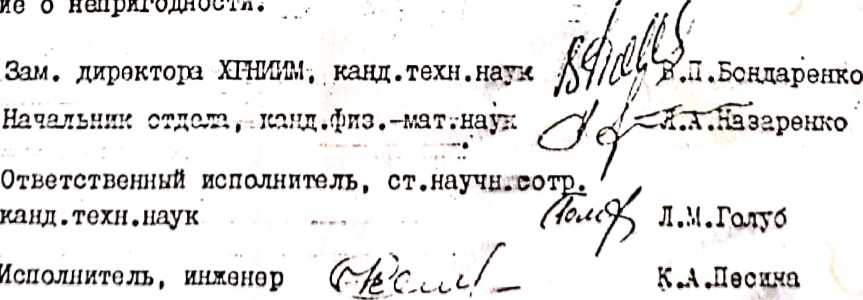 ие о непригодности.
Зам. директора ХГНИИМ, канд.техн.наук В.П.Бондаренко
Начальник отдела, канд.физ.-мат.наук Л.А.Назаренко
Ответственный исполнитель, ст.научн.сотр.
канд.техн.наук Л.М.Голуб
Исполнитель, инженер К.А.Песина